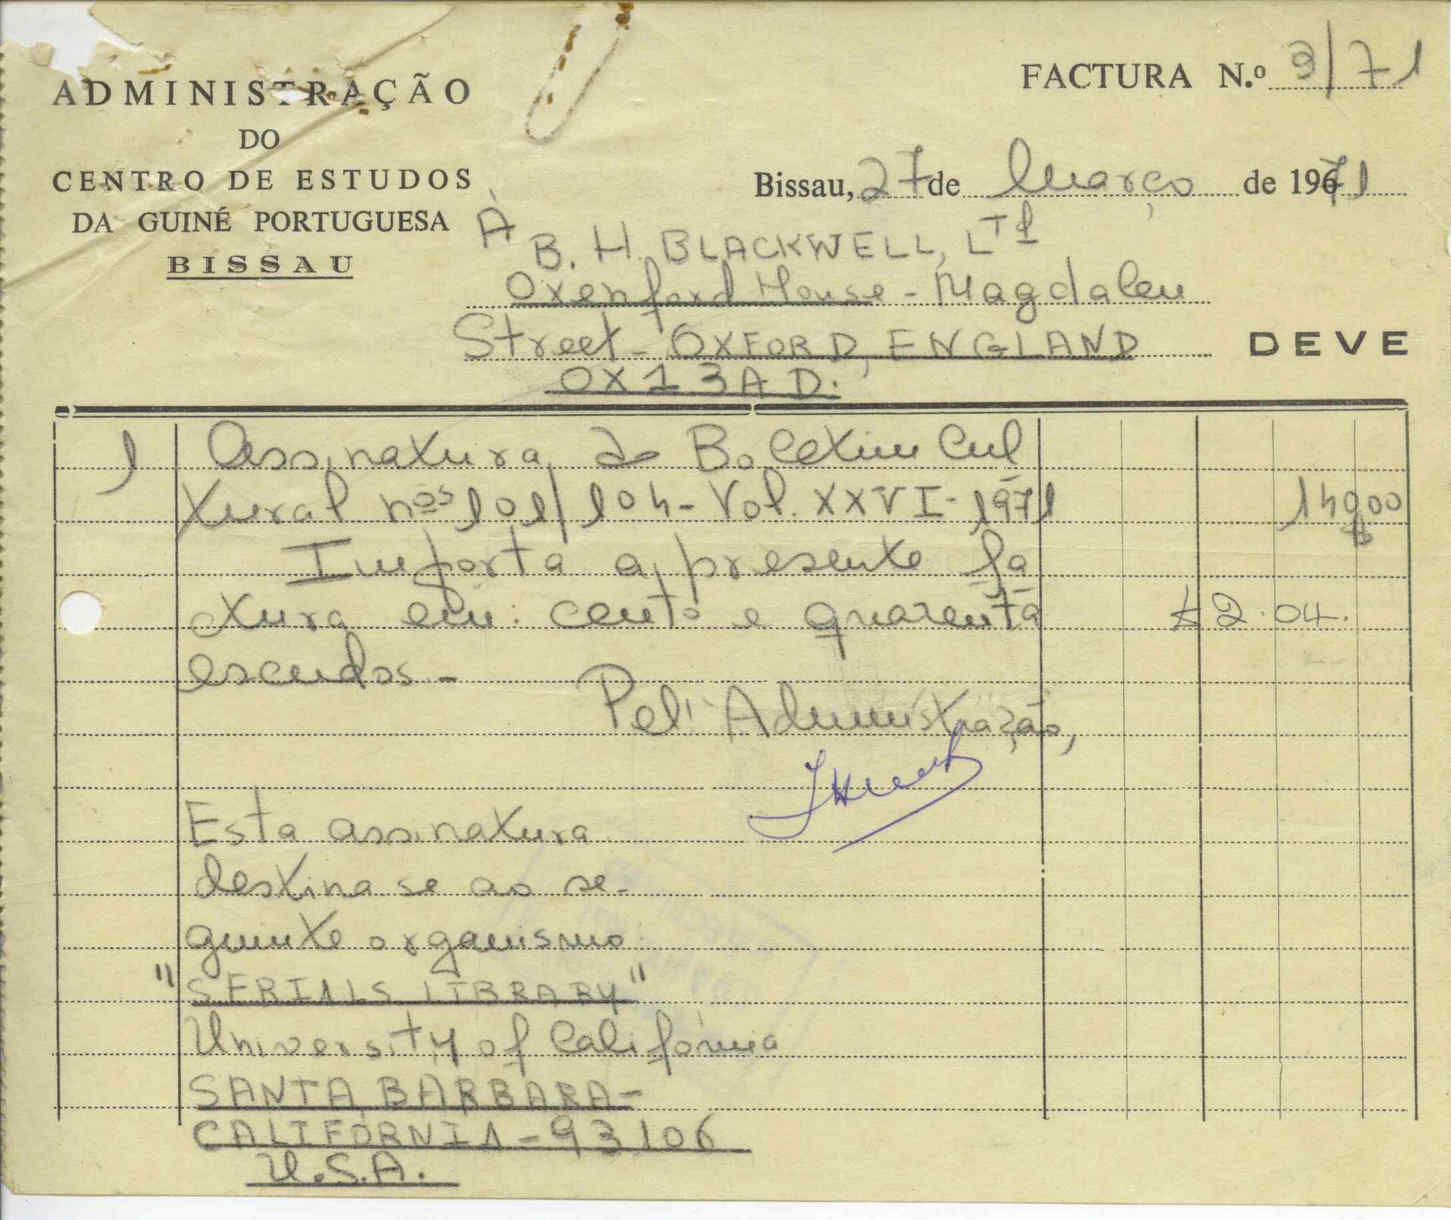 ADMINISTRAÇÃO
DO
CENTRO DE ESTUDOS
DA GUINÉ PORTUGUESA
BISSAU
FACTURA N.º 3/71
Bissau, 27 de Março de 1971
À B. H. BLACKWELL, LTD
Oxenford House - Magdalen
Street - OXFORD, ENGLAND
OX13AD.
DEVE
1 Assinatura do Boletim Cul
tural nos 101/104 - Vol. XXVI - 1971 140$00
Importa a presente fa
ctura em: cento e quarenta £2.04.
escudos -
Pel' Administração,
Esta assinatura
destina se ao se-
guinte organismo
"SERIALS LIBRARY"
University of Califórnia
SANTA BARBARA -
CALIFÓRNIA - 93106
U.S.A.